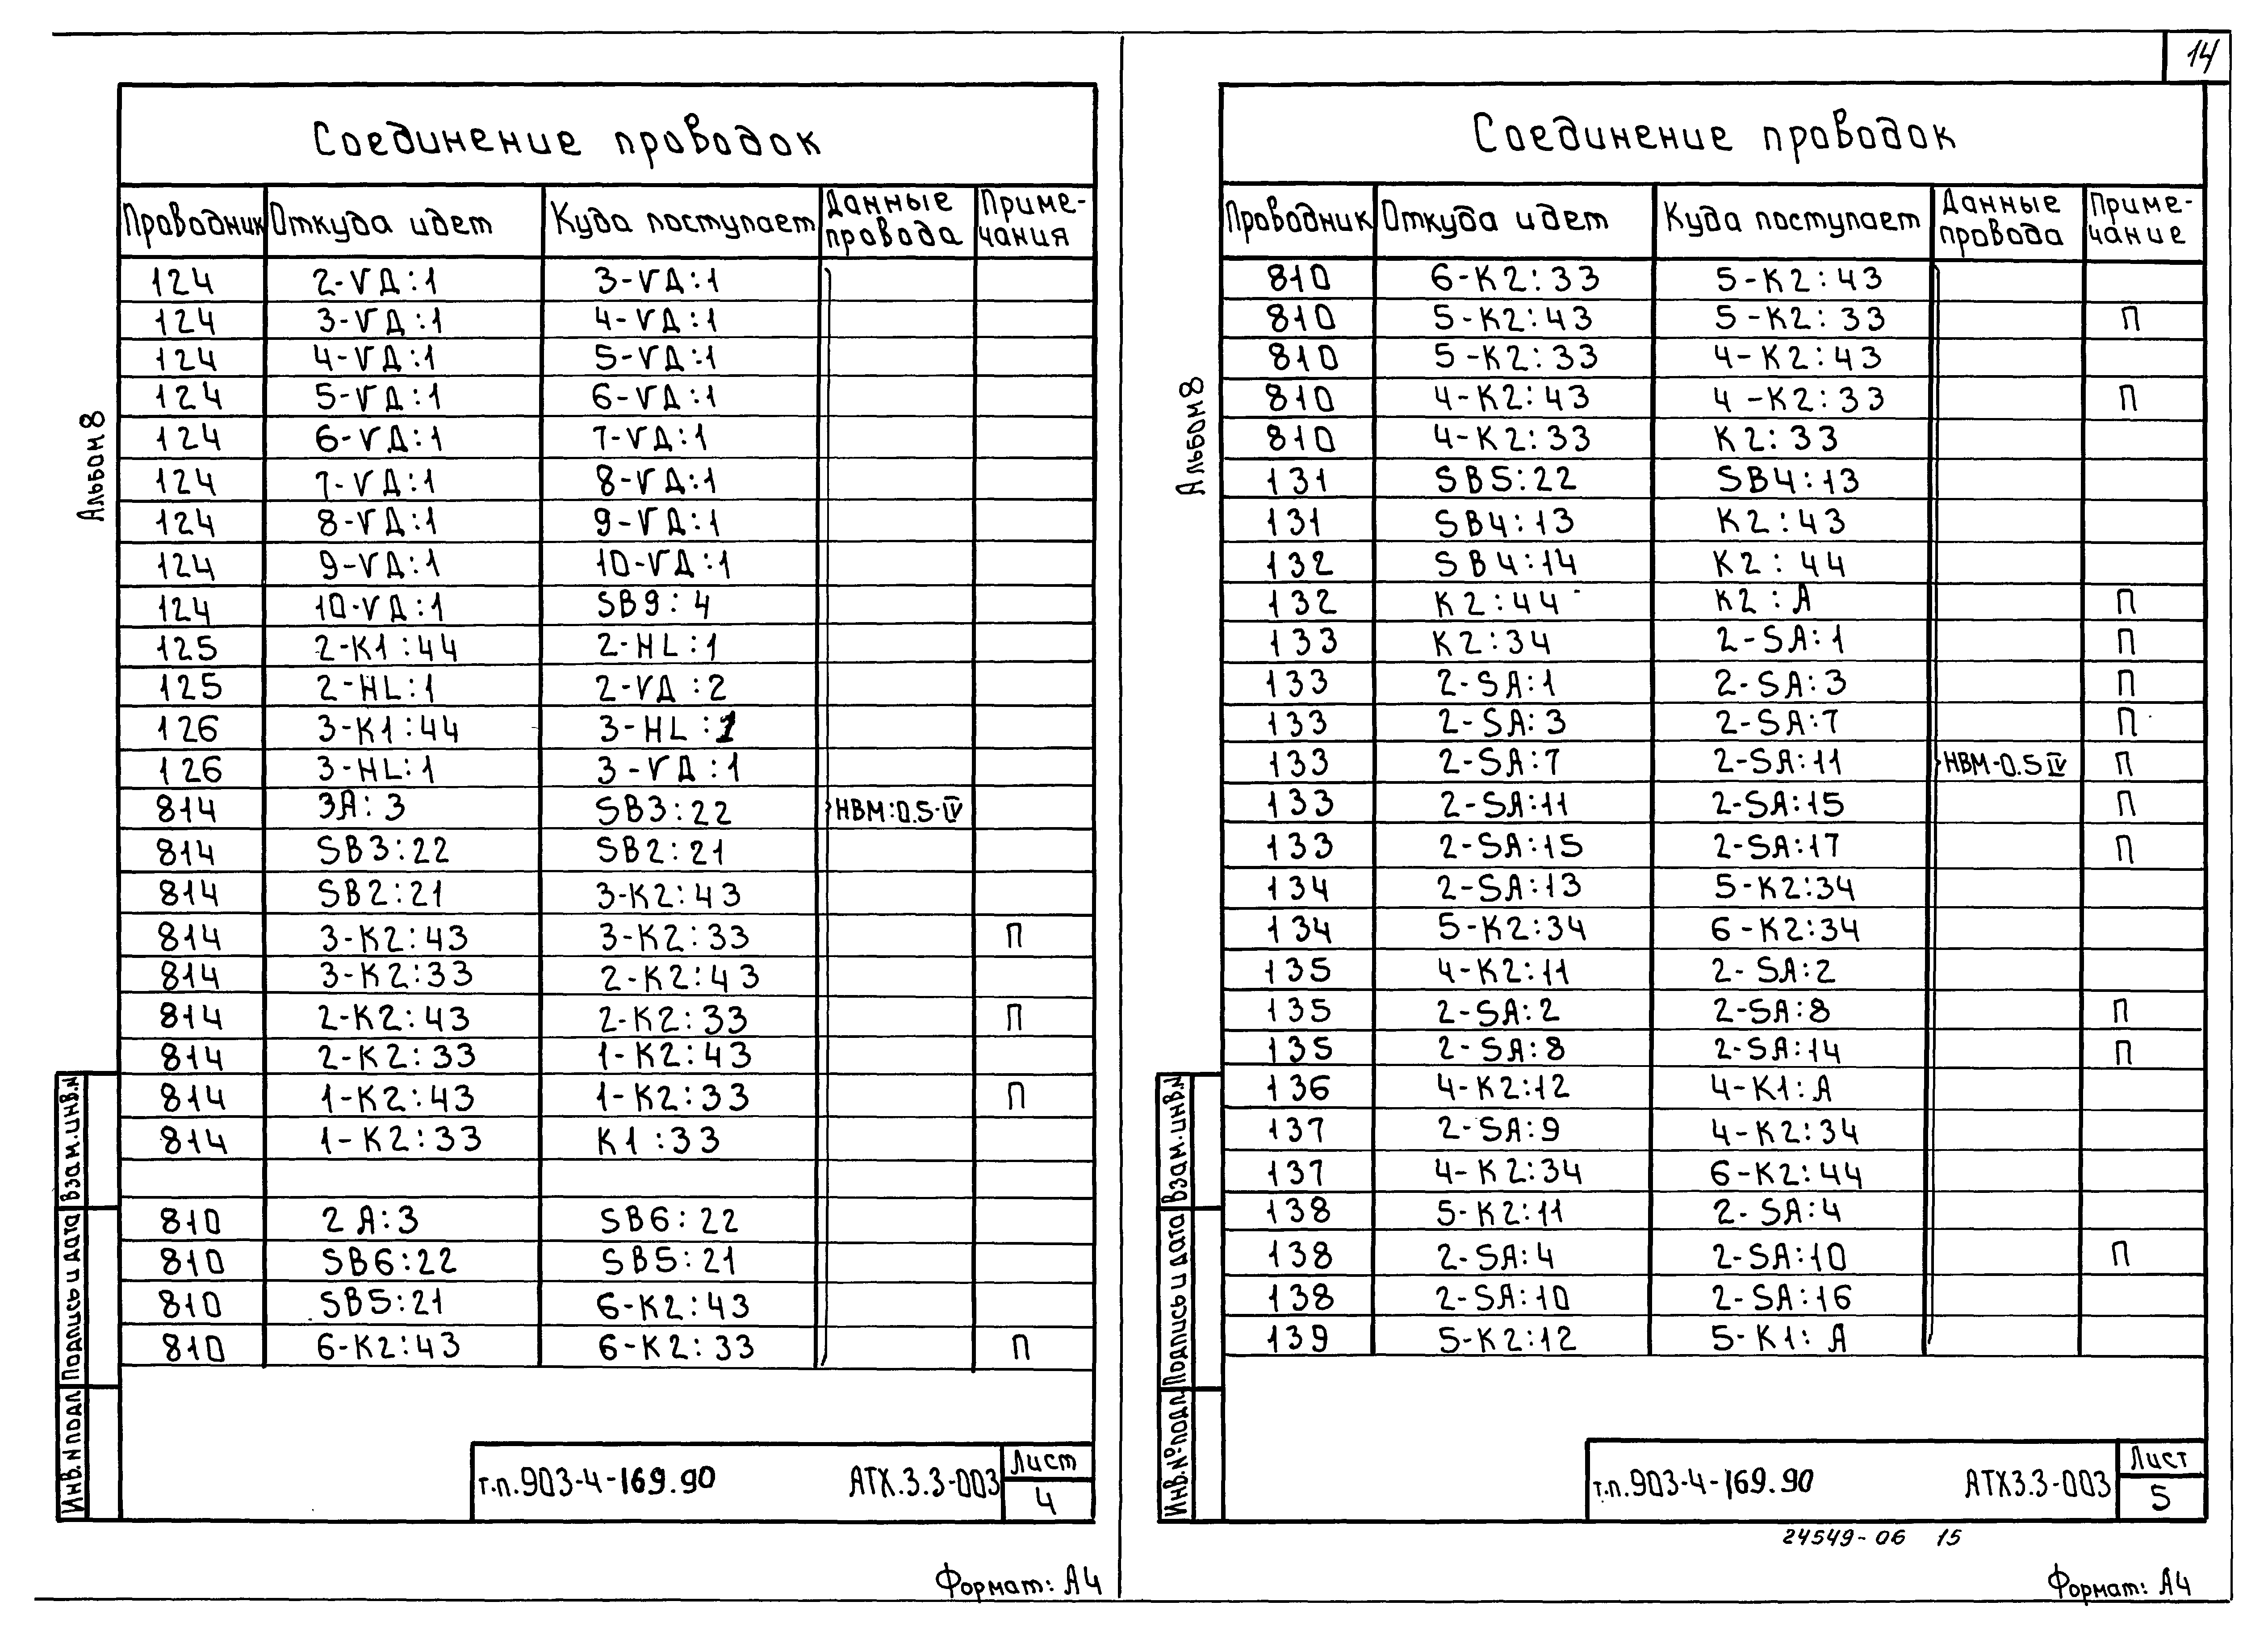 14
Соединение проводок
Проводник Откуда идет Куда поступает Данные провода Приме-чания
124 2-VД:1 3-VД:1
124 3-VД:1 4-VД:1
124 4-VД:1 5-VД:1
124 5-VД:1 6-VД:1
124 6-VД:1 7-VД:1
124 7-VД:1 8-VД:1
124 8-VД:1 9-VД:1
124 9-VД:1 10-VД:1
124 10-VД:1 SB9:4
125 2-K1:44 2-HL:1
125 2-HL:1 2-VД:2
126 3-K1:44 3-HL:1
126 3-HL:1 3-VД:1
814 3A:3 SB3:22 НВМ:0.5-IV
814 SB3:22 SB2:21
814 SB2:21 3-K2:43
814 3-K2:43 3-K2:33 П
814 3-K2:33 2-K2:43
814 2-K2:43 2-K2:33 П
814 2-K2:33 1-K2:43
814 1-K2:43 1-K2:33 П
814 1-K2:33 K1:33
810 2A:3 SB6:22
810 SB6:22 SB5:21
810 SB5:21 6-K2:43
810 6-K2:43 6-K2:33 П
Альбом 8
Взам.инв.N
Подпись и дата
Инв.N подл
т.п.903-4-169.90 АТХ.3.3-003 Лист
4
Формат: А4
Соединение проводок
Проводник Откуда идет Куда поступает Данные провода Приме-чание
810 6-K2:33 5-K2:43
810 5-K2:43 5-K2:33 П
810 5-K2:33 4-K2:43
810 4-K2:43 4-K2:33 П
810 4-K2:33 K2:33
131 SB5:22 SB4:13
131 SB4:13 K2:43
132 SB4:14 K2:44
132 K2:44 K2:A П
133 K2:34 2-SA:1 П
133 2-SA:1 2-SA:3 П
133 2-SA:3 2-SA:7 П
133 2-SA:7 2-SA:11 НВМ-0.5 IV П
133 2-SA:11 2-SA:15 П
133 2-SA:15 2-SA:17 П
134 2-SA:13 5-K2:34
134 5-K2:34 6-K2:34
135 4-K2:11 2-SA:2
135 2-SA:2 2-SA:8 П
135 2-SA:8 2-SA:14 П
136 4-K2:12 4-K1:A
137 2-SA:9 4-K2:34
137 4-K2:34 6-K2:44
138 5-K2:11 2-SA:4
138 2-SA:4 2-SA:10 П
138 2-SA:10 2-SA:16
139 5-K2:12 5-K1:A
Альбом 8
Взам.инв.N
Подпись и дата
Инв.№подл.
т.п.903-4-169.90 АТХ3.3-003 Лист
5
24549-06 15
Формат: А4